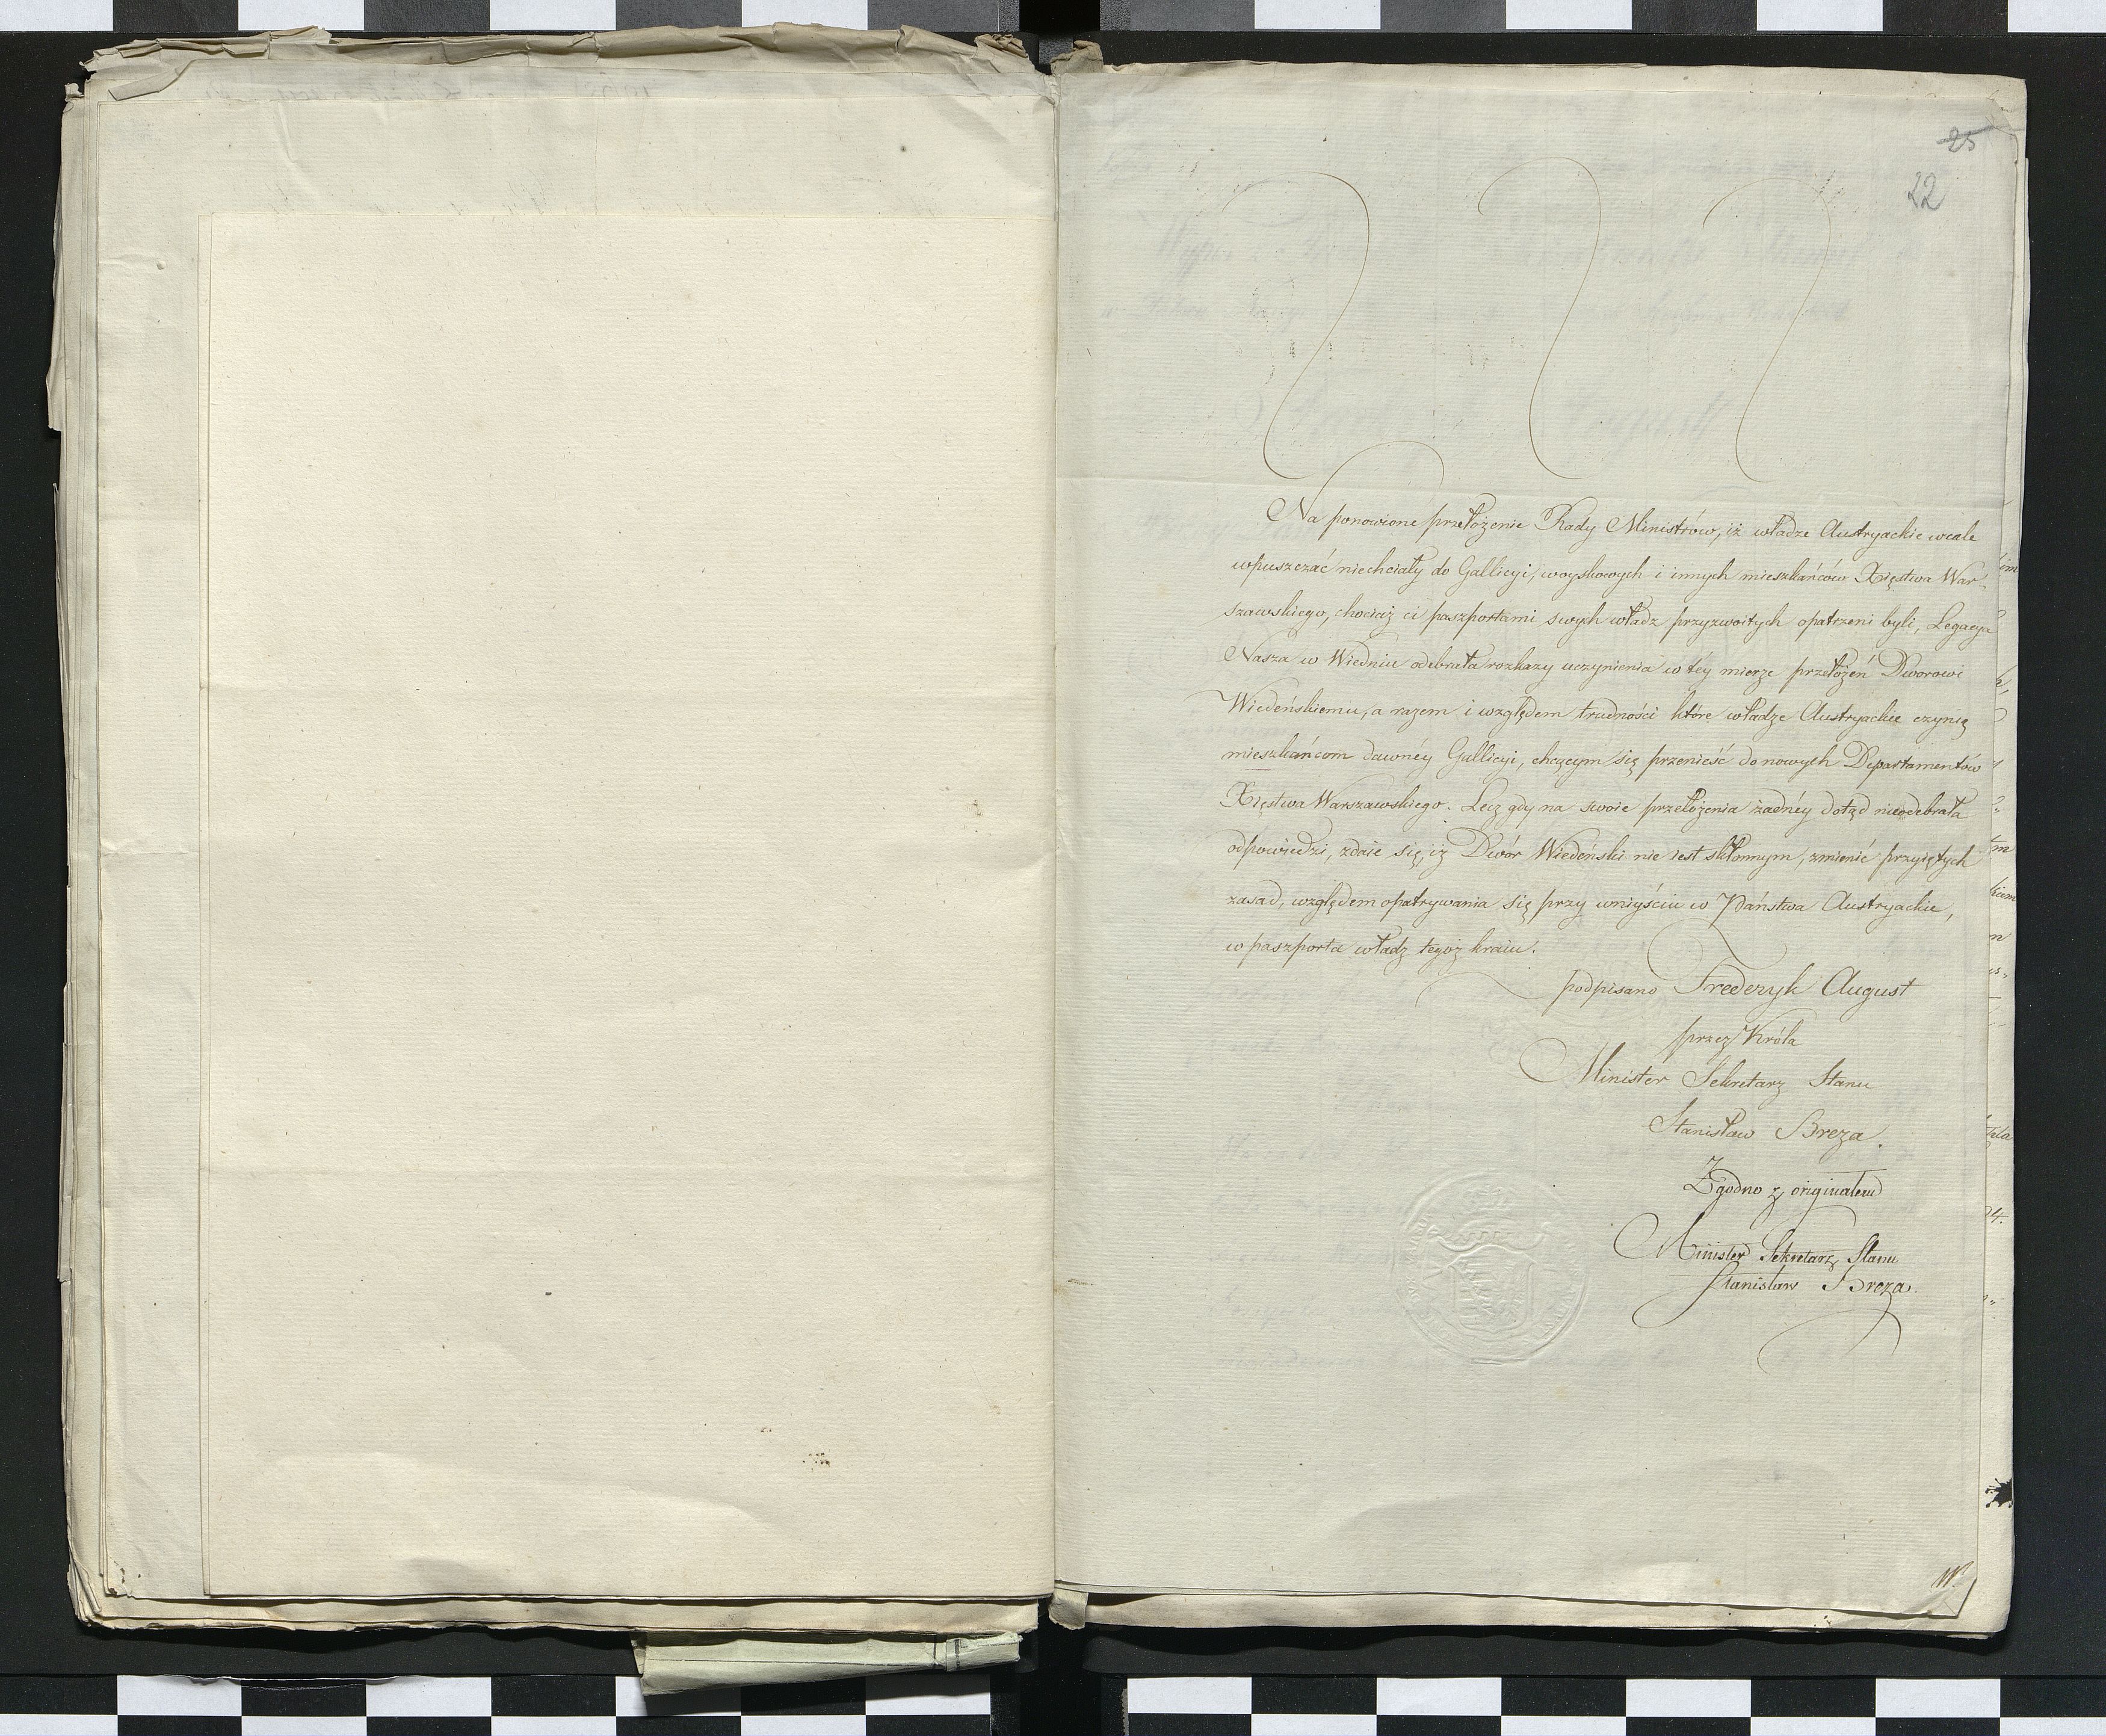 25
22
Na ponowione przełożenie Rady Ministrów, iż władze Austryackie wcale
wpuszczać niechciały do Gallicyi, woyskowych i innych mieszkańców Xięstwa War-
szawskiego, chociaż ci paszportami swych władz przyzwoitych opatrzeni byli, Legacya
Nasza w Wiedniu odebrała rozkazy uczynienia w tey mierze przełożeń Dworowi
Wiedeńskiemu, a razem i względem trudności które władze Austryackie czynią
mieszkańcom dawnéy Gallicyi, chcącym się przenieść do nowych Departamentów
Xięstwa Warszawskiego. Lecz gdy na swoie przełożenia żadnéy dotąd nieodebrała
odpowiedzi, zdaie się, iż Dwór Wiedeński nie iest skłonnym, zmienić przyiętych
zasad, względem opatrywania się przy wniyściu w Państwa Austryackie,
w paszporta władz tegoż kraiu.
podpisano Frederyk August
przez Króla
Minister Sekretarz Stanu
Stanisław Breza.
Zgodno z originałem
Minister Sekretarz Stanu
Stanisław Breza